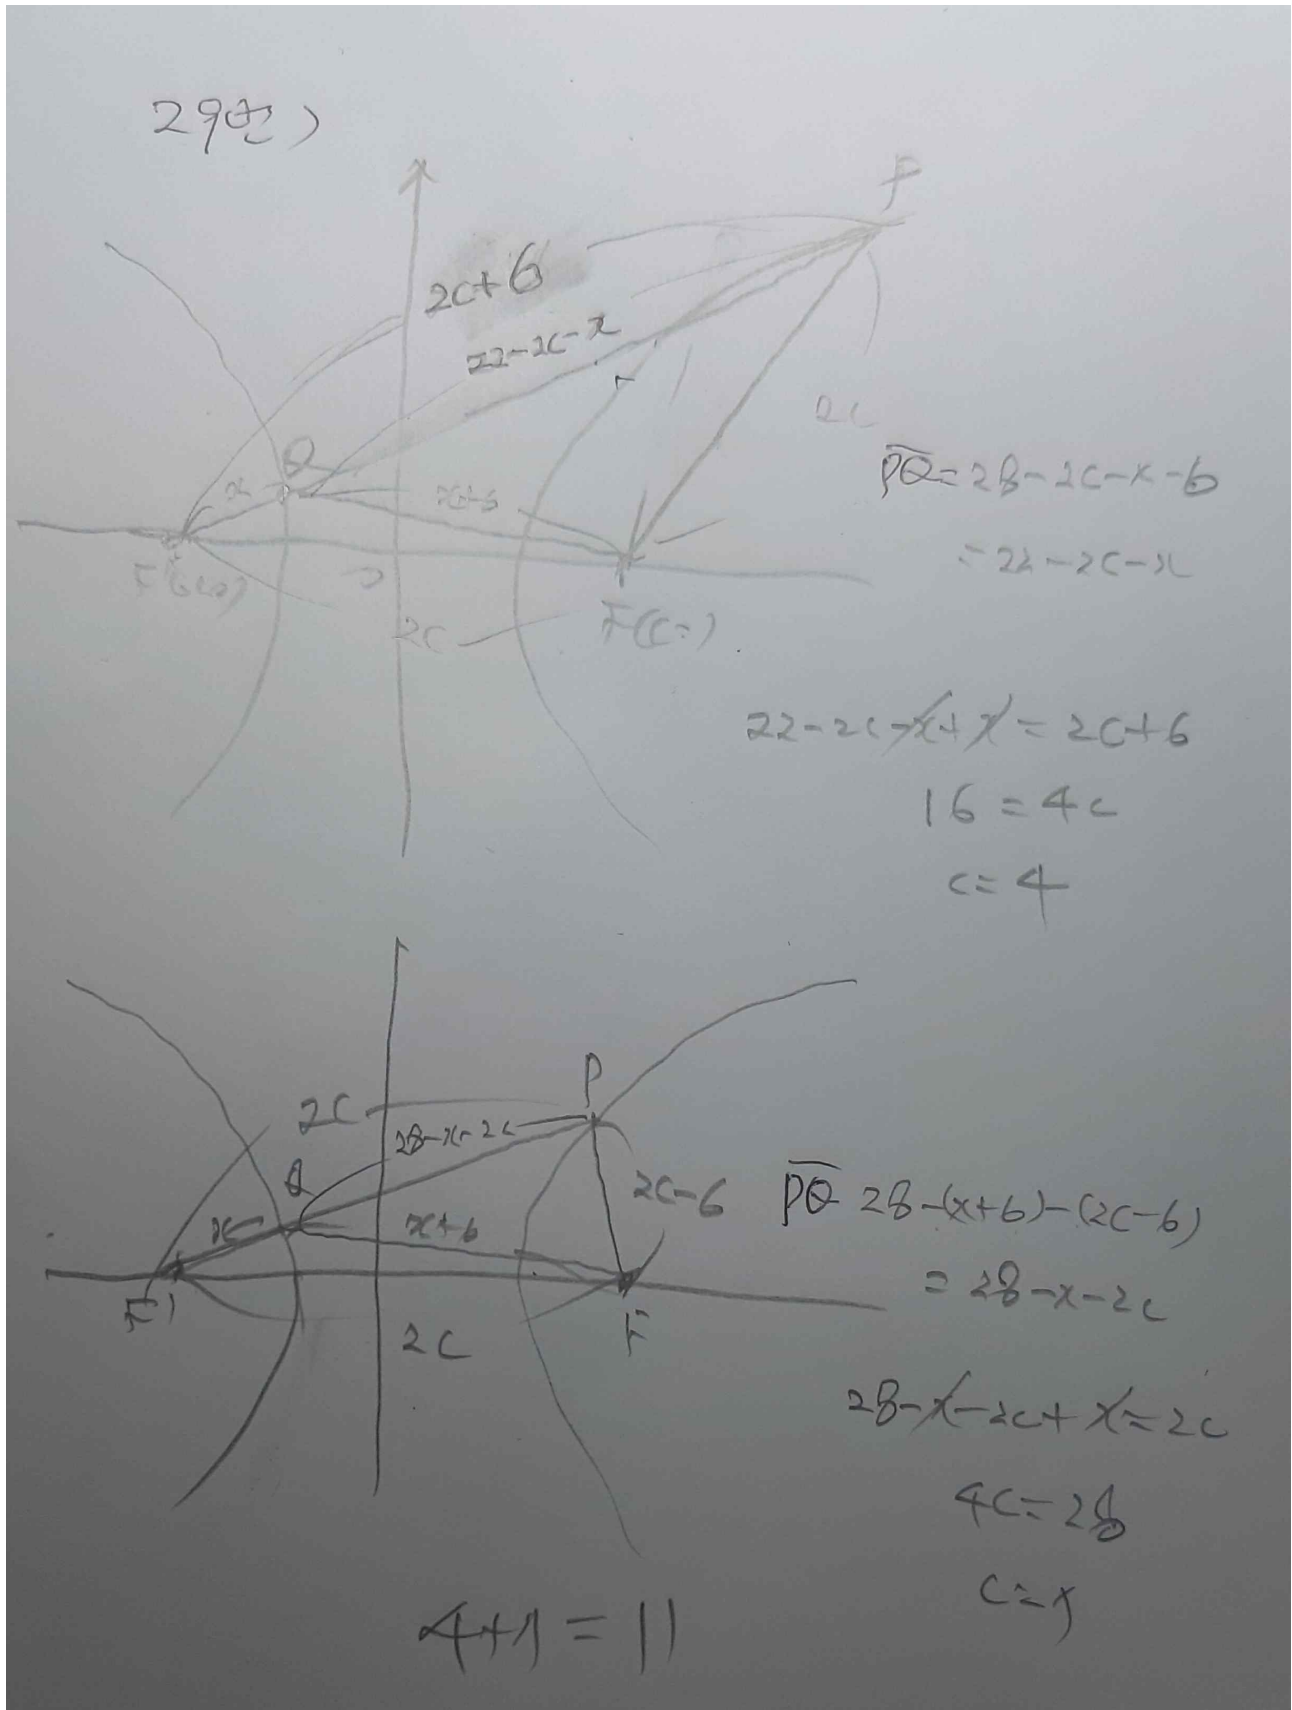 29번)
P
2c+6
22-2c-x
2c
Q
x
x+6
F(c,0)
2c
PQ = 28-2c-x-6
= 22-2c-x
22-2c-x+x = 2c+6
16 = 4c
c = 4
P
2c
28-x-2c
Q
x
x+6
2c-6
F'
F
2c
PQ 28-(x+6)-(2c-6)
= 28-x-2c
28-x-2c+x = 2c
4c = 28
c = 7
4+7 = 11